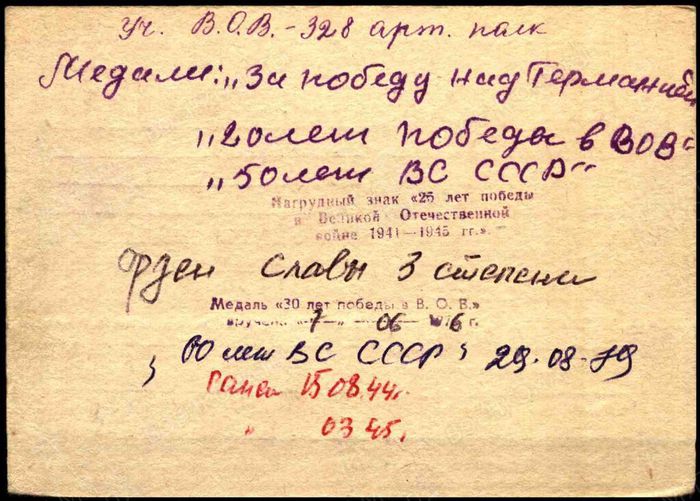 Уч. В.О.В. - 328 арт. полк
Медали: „За победу над Германией
„20 лет победы в ВОВ“
„50 лет ВС СССР“
Нагрудный знак «25 лет победы
в Великой Отечественной
войне 1941—1945 гг.».
Орден Славы 3 степени
Медаль «30 лет победы в В. О. В.»
вручена «7» 06 1976 г.
„60 лет ВС СССР“ 29.08.79
Ранен 15.08.44г.
" 03 45.